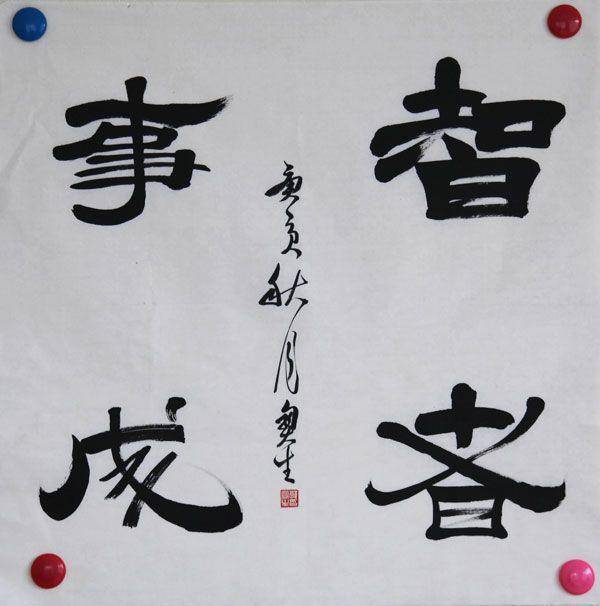 智者
事成
庚寅秋月